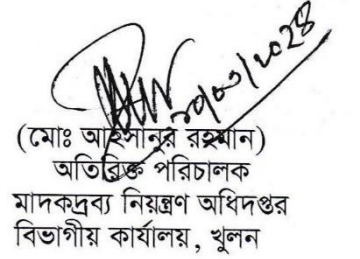 ২০/০৩/২০২৪
(মোঃ আহসানুর রহমান)
অতিরিক্ত পরিচালক
মাদকদ্রব্য নিয়ন্ত্রণ অধিদপ্তর
বিভাগীয় কার্যালয়, খুলন